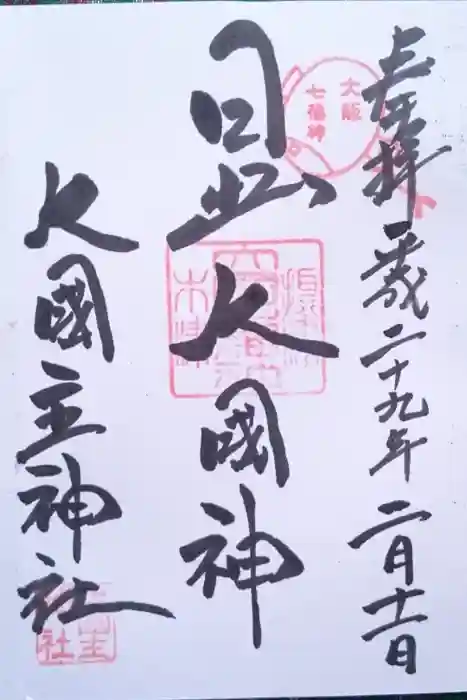 奉拝 平成二十九年二月十一日
大阪
七福神
日出大國神
大國主神社